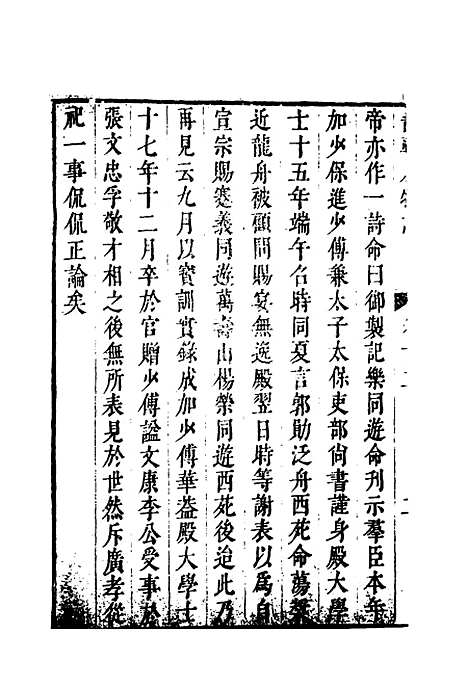 帝亦作一詩命曰御製記樂同遊命刊示羣臣本年
加少保進少傅兼太子太保吏部尚書謹身殿大學
士十五年端午召時同夏言郭勛泛舟西苑命蕩槳
近龍舟被顧問賜宴無逸殿翌日時等謝表以爲自
宣宗賜蹇義同遊萬壽山楊榮同遊西苑後迨此乃
再見云九月以寳訓實錄成加少傅華葢殿大學士
十七年十二月卒於官贈少傅謚文康李公受事於
張文忠孚敬才相之後無所表見於世然斥廣孝從
祀一事侃侃正論矣